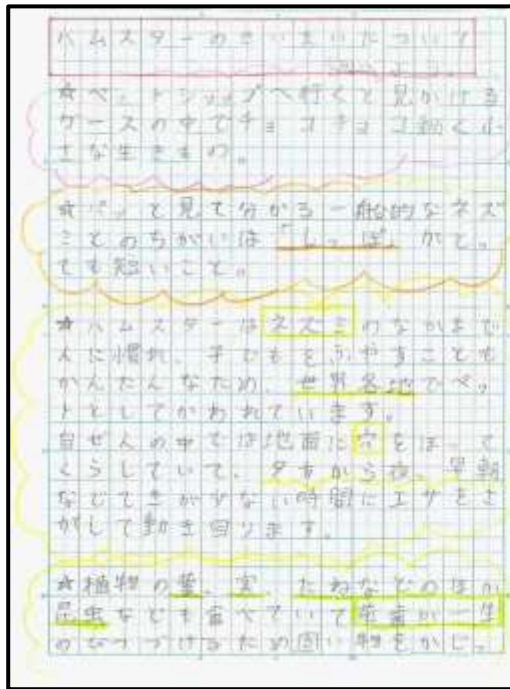 ハムスターのせいたいについて
★ペットショップへ行くと見かける
ケースの中でチョコチョコ動く小
さな生きもの。
★パッと見て分かる一般的なネズ
ミとのちがいは「しっぽ」がと。
ても短いこと。
★ハムスターはネズミのなかまで
人に慣れ、子どもをふやすことも
かんたんなため、世界各地でペッ
トとしてかわれています。
自ぜんの中では地面に穴をほって
くらしていて、夕方から夜、早朝
などてきが少ない時間にエサをさ
がして動き回ります。
★植物の葉、実、たねなどのほか
昆虫なども食べていて前歯が一生
のびつづけるため固い物をかじ。